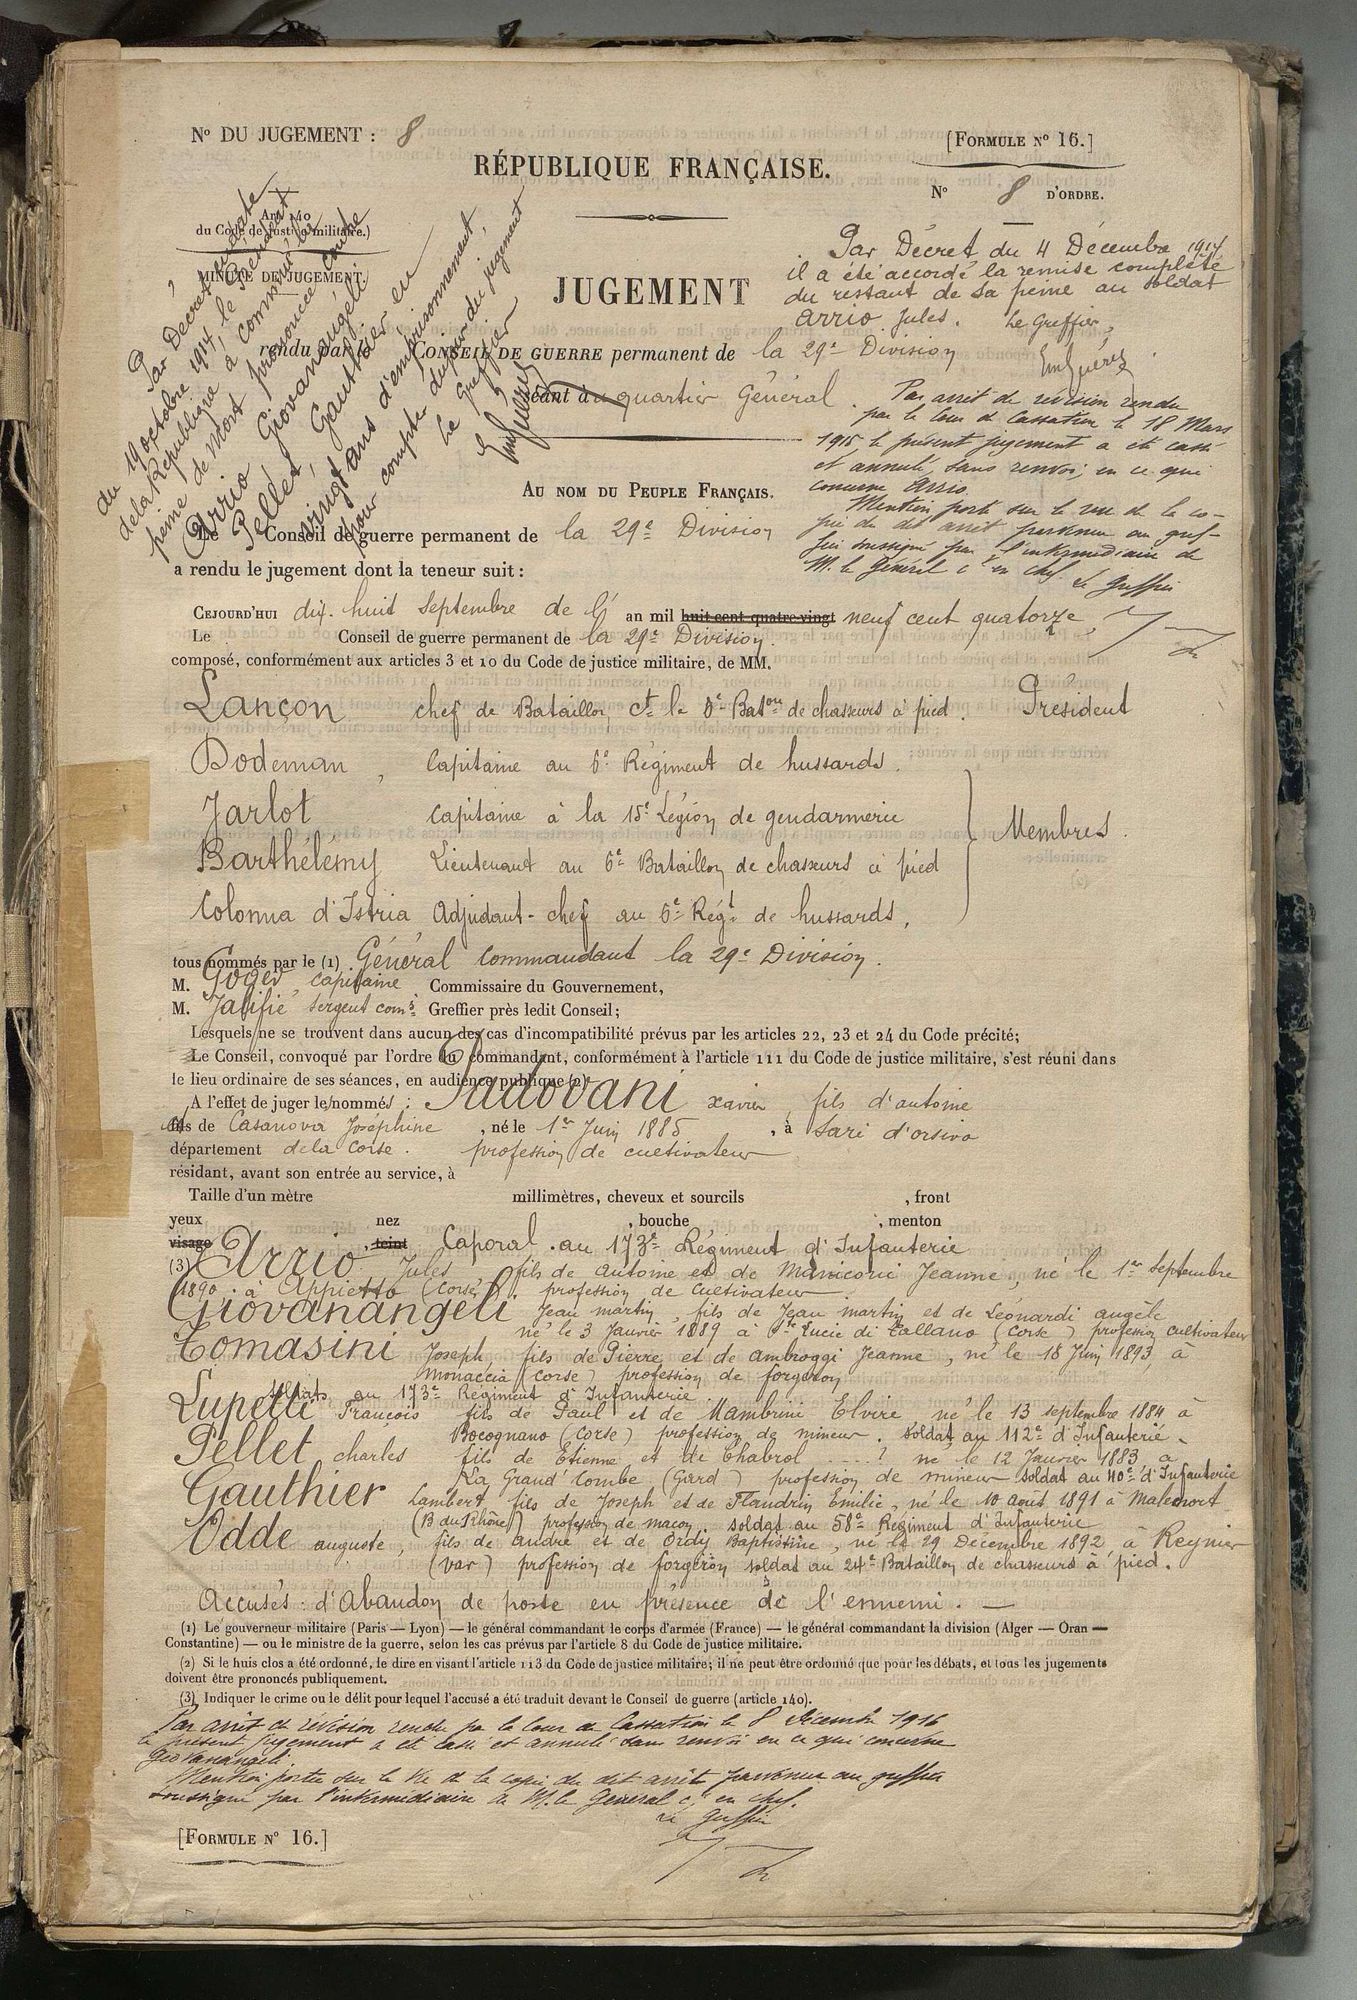 N° DU JUGEMENT : 8
[FORMULE N° 16.]
RÉPUBLIQUE FRANÇAISE.
N° 8 D'ORDRE.
Art. 140
du Code de justice militaire.)
MINUTE DE JUGEMENT.
Par Décret en date
du 19 octobre 1914, le Président
de la République a commué la
peine de mort prononcée contre
Arrio Giovanangéli
Pellet, Gauthier en
vingt ans d'emprisonnement,
pour compter du jour du jugement
Le Greffier
Par Décret du 4 Décembre 1914
il a été accordé la remise complète
du restant de sa peine au soldat
Arrio Jules. Le Greffier,
JUGEMENT
rendu par le CONSEIL DE GUERRE permanent de la 29e Division
séant au quartier Général.
Par arrêt de révision rendu
par la Cour de Cassation le 18 Mars
1915 le présent jugement a été cassé
et annulé, sans renvoi, en ce qui
concerne Arrio.
Mention porté sur le vu de la co-
pie du dit arrêt parvenue au gref-
fier soussigné par l'intermédiaire de
M. le Général ct en chef. Le Greffier
AU NOM DU PEUPLE FRANÇAIS.
Le Conseil de guerre permanent de la 29e Division
a rendu le jugement dont la teneur suit :
CEJOURD'HUI dix-huit Septembre de l' an mil huit cent quatre-vingt neuf cent quatorze,
Le Conseil de guerre permanent de la 29e Division.
composé, conformément aux articles 3 et 10 du Code de justice militaire, de MM.
Lançon chef de Bataillon, Ct le 6e Baton de chasseurs à pied. Président
Dodeman, Capitaine au 6e Régiment de hussards.
Jarlot Capitaine à la 15e Légion de gendarmerie
Membres.
Barthélémy Lieutenant au 6e Bataillon de chasseurs à pied
Colonna d'Istria Adjudant-chef au 6e Régt de hussards,
tous nommés par le (1) Général Commandant la 29e Division.
M. capitaine Commissaire du Gouvernement,
M. sergent Greffier près ledit Conseil;
Lesquels ne se trouvent dans aucun des cas d'incompatibilité prévus par les articles 22, 23 et 24 du Code précité;
Le Conseil, convoqué par l'ordre du commandant, conformément à l'article 111 du Code de justice militaire, s'est réuni dans
le lieu ordinaire de ses séances, en audience publique (2)
A l'effet de juger les nommés : Padovani xavier, fils d'antoine
fils de Casanova Joséphine, né le 1er Juin 1885, à Sari d'orsino
département de la Corse. profession de cultivateur
résidant, avant son entrée au service, à
Taille d'un mètre millimètres, cheveux et sourcils , front
yeux nez , bouche , menton
visage , teint Caporal au 173e Régiment d'Infanterie
(3) Arrio Jules fils de Antoine et de Manicorii Jeanne, né le 1er Septembre
1890 à Appietto (Corse) profession de cultivateur.
Giovanangéli Jean martin, fils de Jean martin et de Léonardi angèle
né le 3 Janvier 1889 à Ste Lucie di Tallano (Corse) profession cultivateur
Tomasini Joseph fils de Pierre et de Ambroggi Jeanne, né le 18 Juin 1893 à
Monaccia (Corse) profession de forgeron
soldats au 173e Régiment d'Infanterie
Lupetti François fils de Paul et de Mambrini Elvire, né le 13 septembre 1884 à
Bocognano (Corse) profession de mineur. soldat au 112e d'Infanterie.
Pellet charles fils de Etienne et de Chabrol ....? né le 12 Janvier 1883 à
La Grand'Combe (Gard) profession de mineur soldat au 40e d'Infanterie
Gauthier Lambert fils de Joseph et de Flandrin Emilie, né le 10 août 1891 à Malemort
(B du Rhône) profession de maçon. soldat au 58e Régiment d'Infanterie
Odde auguste, fils de andré et de Ordy Baptistine, né le 29 Décembre 1892, à Reynier
(var) profession de forgeron soldat au 24e Bataillon de chasseurs à pied.
Accusés : d'Abandon de poste en présence de l'ennemi. —
(1) Le gouverneur militaire (Paris — Lyon) — le général commandant le corps d'armée (France) — le général commandant la division (Alger — Oran —
Constantine) — ou le ministre de la guerre, selon les cas prévus par l'article 8 du Code de justice militaire.
(2) Si le huis clos a été ordonné, le dire en visant l'article 113 du Code de justice militaire; il ne peut être ordonné que pour les débats, et tous les jugements
doivent être prononcés publiquement.
(3) Indiquer le crime ou le délit pour lequel l'accusé a été traduit devant le Conseil de guerre (article 140).
Par arrêt de révision rendu par la Cour de Cassation le 8 décembre 1916
le présent jugement a été cassé et annulé sans renvoi en ce qui concerne
Giovanangeli
Mention portée sur le vu de la copie du dit arrêt parvenue au greffier
soussigné par l'intermédiaire de M. le Général ct en chef.
Le Greffier
[FORMULE N° 16.]